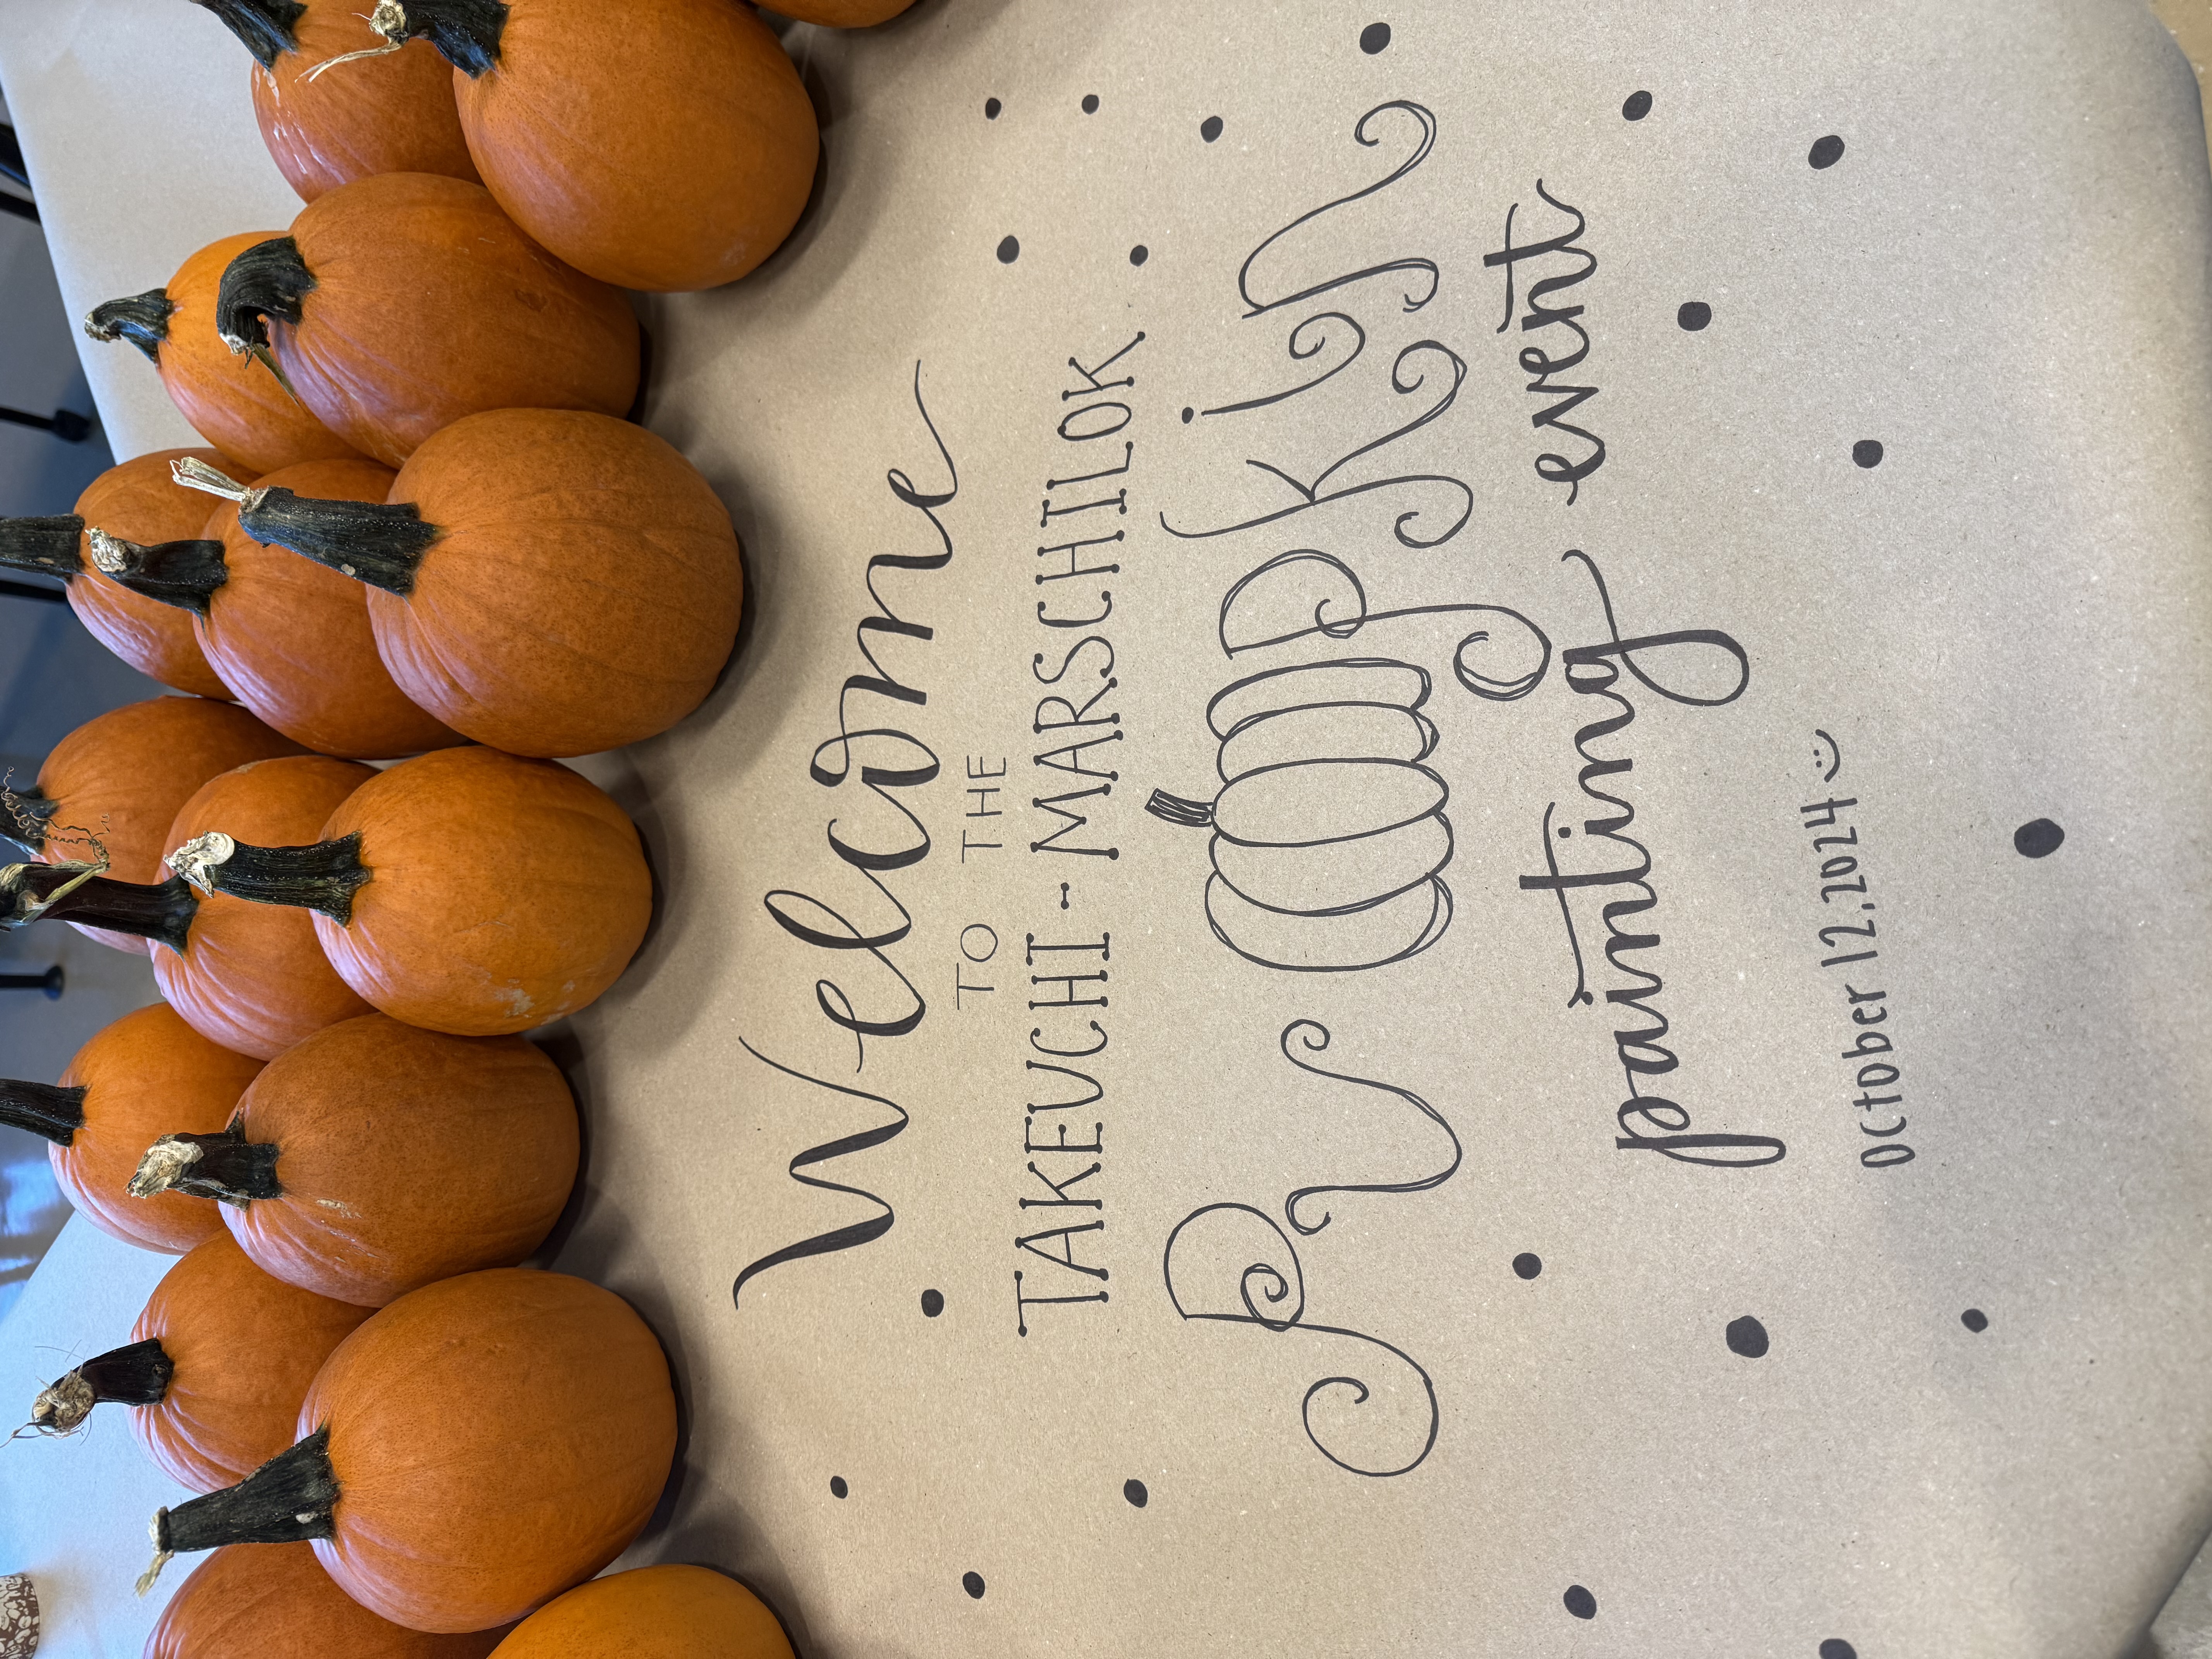 Welcome
TO THE
TAKEUCHI-MARSCHILOK
PUMPKIN
painting event
October 12, 2024 :)